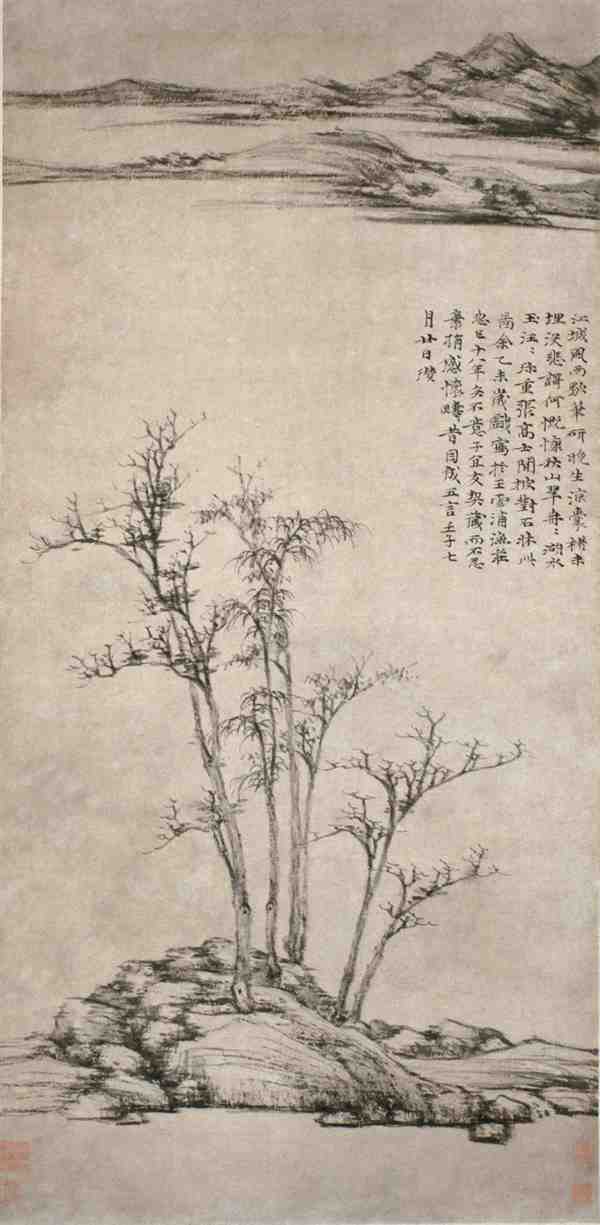 江城風雨歇筆研晚生涼囊楮未
埋沒悲謌何慨慷秋山翠冉冉湖水
玉汪汪珍重張高士閒披對石牀此
圖余乙未歲戲寫於王雲浦漁莊
忽已十八年矣不意子宜友契藏而不忍
棄捐感懷疇昔因成五言壬子七
月廿日瓚